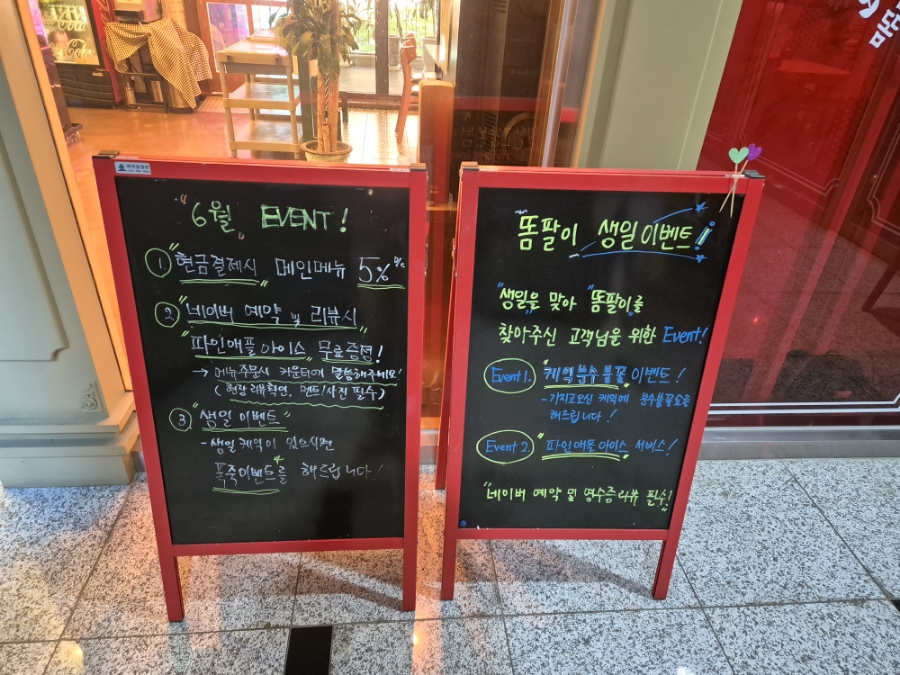 6월 EVENT!
① "현금결제시 메인메뉴 5%
② "네이버 예약 및 리뷰시
파인애플아이스 무료증정!
→ 메뉴주문시 카운터에 말씀해주세요!
(현장리뷰확인, 멘트/사진 필수)
③ "생일 이벤트"
- 생일케익이 있으시면
폭죽이벤트를 해드립니다!
똠팔이 생일이벤트!
"생일"을 맞아 "똠팔이"를
찾아주신 고객님을 위한 Event!
Event 1. "케익분수불꽃 이벤트!
- 가지고오신 케익에 분수불꽃쇼를
해드립니다!
Event 2. "파인애플아이스 서비스!
"네이버 예약 및 영수증리뷰 필수!